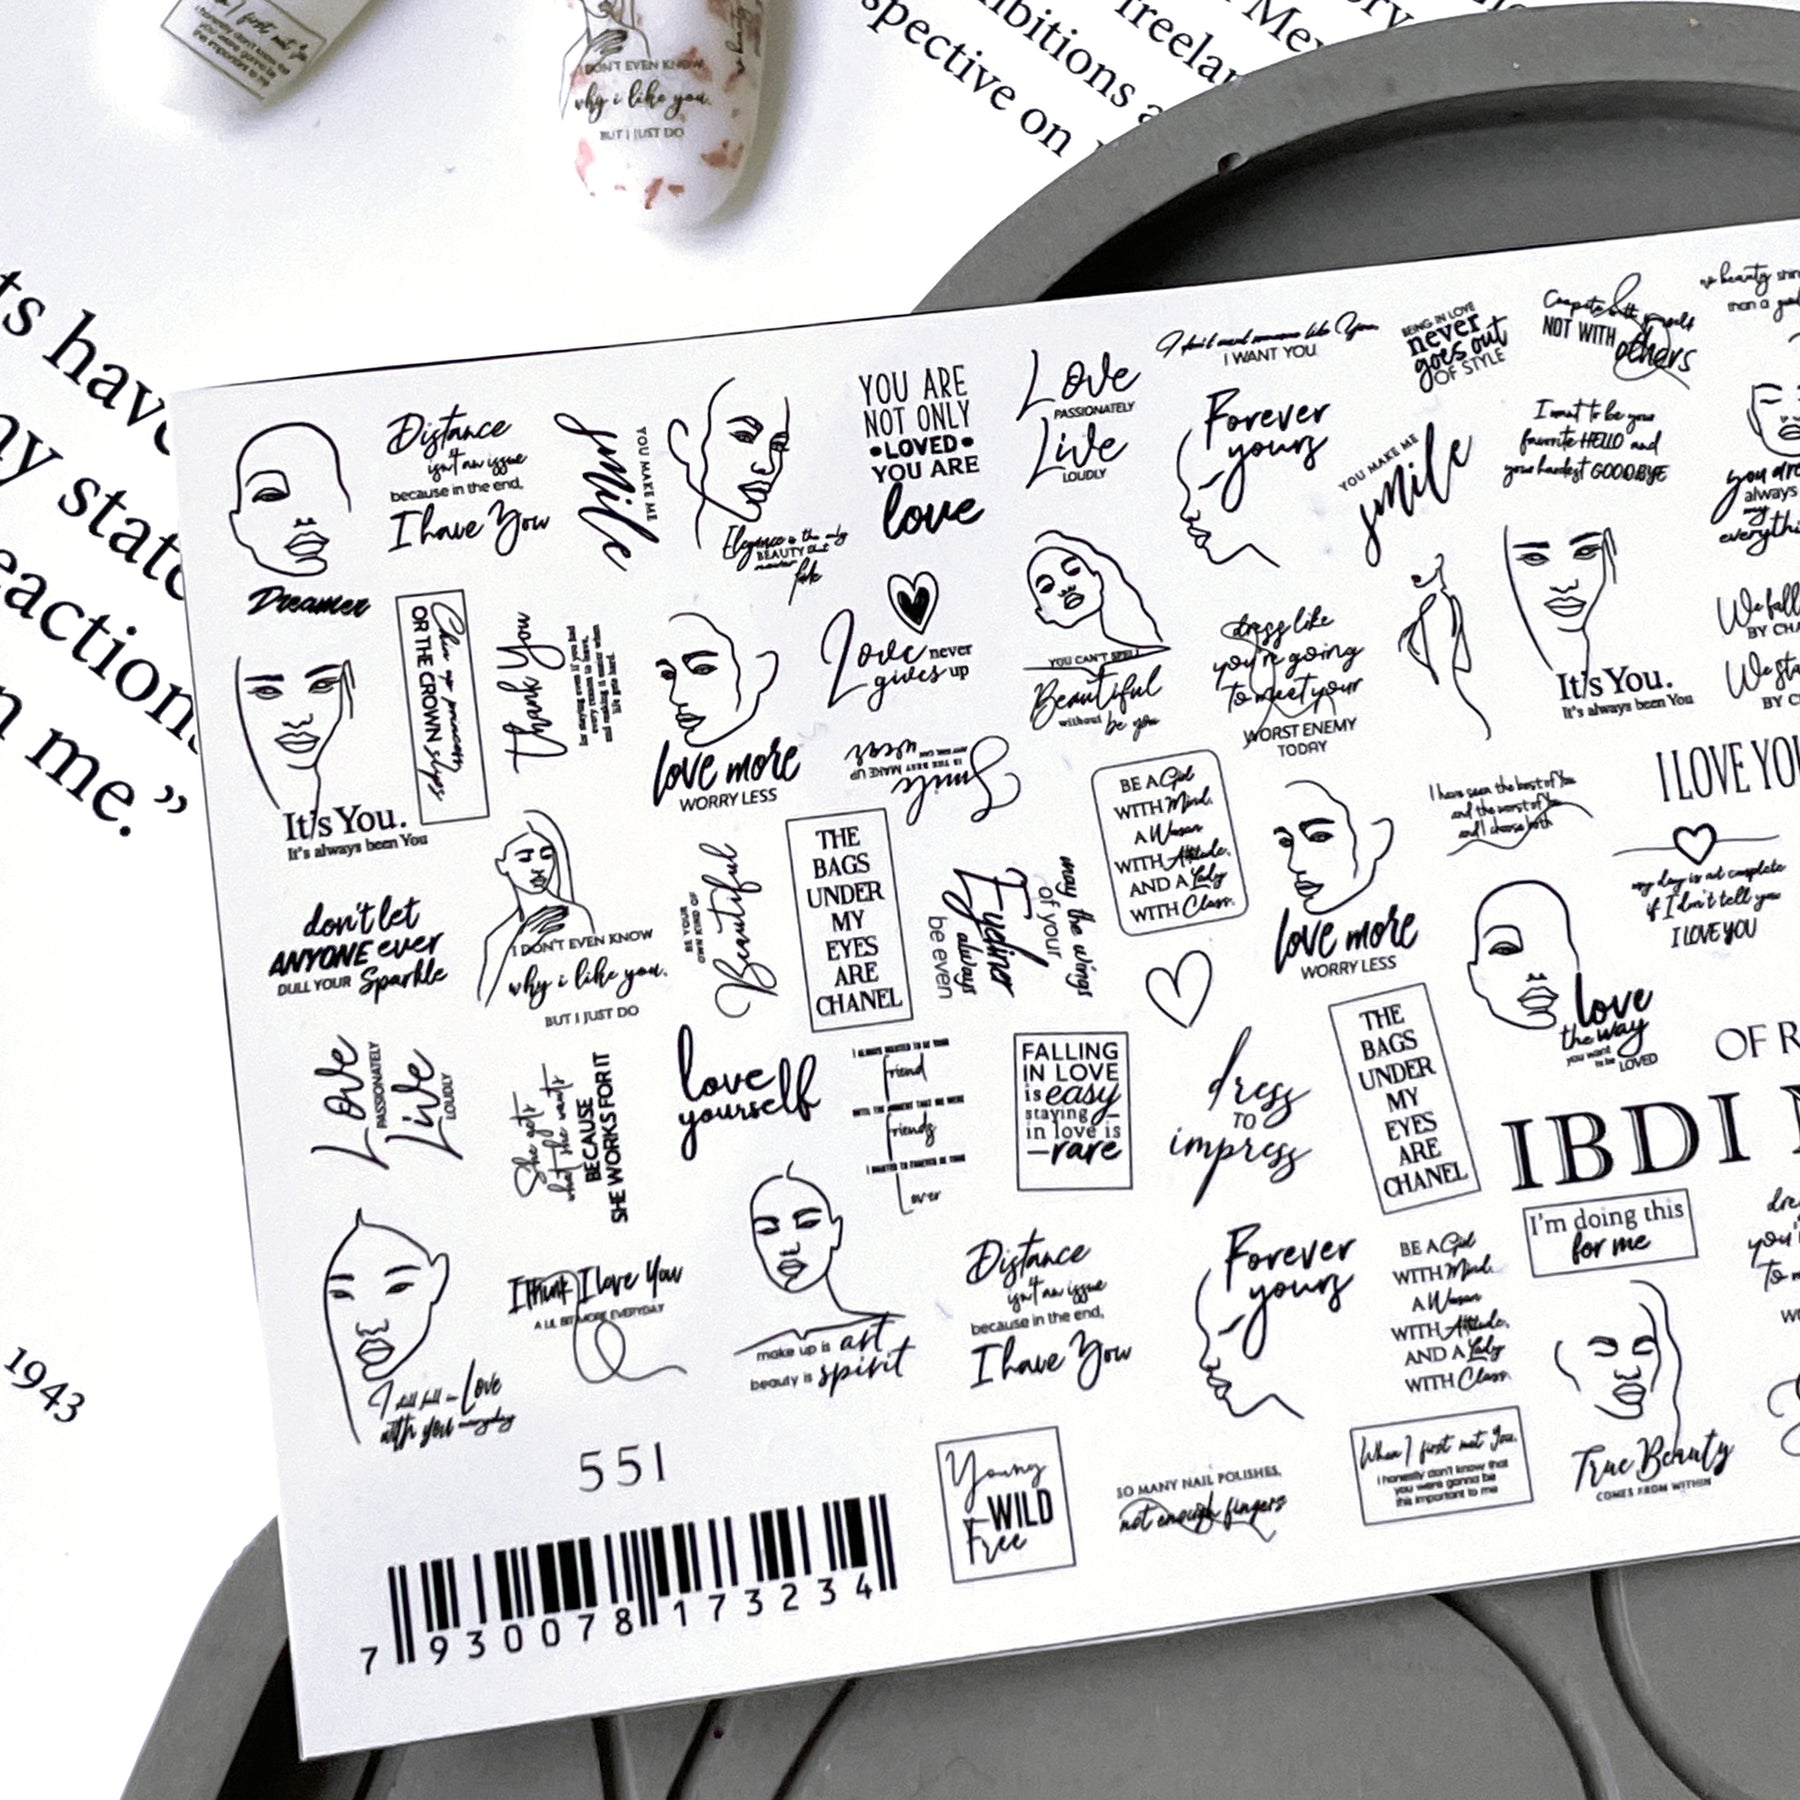 I first met You
I honestly don't know that
you were gonna be
this important to me
I DON'T EVEN KNOW
why i like you.
BUT I JUST DO
spective on
ibitions a
freelan
ts have
ny state
eactions
n me.”
1943
Dreamer
Distance
isn't an issue
because in the end,
I have You
YOU MAKE ME
smile
Elegance is the only
BEAUTY that
never
fade
YOU ARE
NOT ONLY
•LOVED•
YOU ARE
love
Love
PASSIONATELY
Live
LOUDLY
I don't want someone like You,
I WANT YOU
BEING IN LOVE
never
goes out
OF STYLE
NOT WITH
others
than a
Forever
yours
YOU MAKE ME
smile
I want to be your
favorite HELLO and
your hardest GOODBYE
you are
always
my
everythi
It's You.
It's always been You
Chin up princess
OR THE CROWN slips
Thank You
for staying even if you had
every reason to leave,
and making it easier when
life got hard.
love more
WORRY LESS
Love never
gives up
YOU CAN'T SPELL
Beautiful
without be you
dress like
you're going
to meet your
WORST ENEMY
TODAY
It's You.
It's always been You
We fall
BY CHA
We sta
BY C
Smile
IS THE BEST MAKE UP
ANY GIRL CAN
wear
BE A Girl
WITH Mind,
A Woman
WITH Attitude,
AND A Lady
WITH Class.
love more
WORRY LESS
I have seen the best of You
and the worst of You
and I choose both
I LOVE YOU
my day is not complete
if I don't tell you
I LOVE YOU
don't let
ANYONE ever
DULL YOUR Sparkle
I DON'T EVEN KNOW
why i like you.
BUT I JUST DO
BE YOUR
OWN KIND OF
Beautiful
THE
BAGS
UNDER
MY
EYES
ARE
CHANEL
may the wings
of your
Eyeliner
always
be even
love
the way
you want
to be LOVED
Love
PASSIONATELY
Live
LOUDLY
She gets
what she wants
BECAUSE
SHE WORKS FOR IT
love
yourself
I ALWAYS WANTED TO BE YOUR
friend
UNTIL THE MOMENT THAT WE WERE
friends
I WANTED TO FOREVER BE YOUR
Lover
FALLING
IN LOVE
is easy
staying
in love is
rare
dress
TO
impress
THE
BAGS
UNDER
MY
EYES
ARE
CHANEL
OF R
IBDI
I'm doing this
for me
I still fall in Love
with you everyday
I think I love You
A LIL BIT MORE EVERYDAY
make up is art
beauty is spirit
Distance
isn't an issue
because in the end,
I have You
Forever
yours
BE A Girl
WITH Mind,
A Woman
WITH Attitude,
AND A Lady
WITH Class.
True Beauty
COMES FROM WITHIN
551
Young
WILD
Free
SO MANY NAIL POLISHES,
not enough fingers
When I first met You,
I honestly don't know that
you were gonna be
this important to me
7 930078 173234